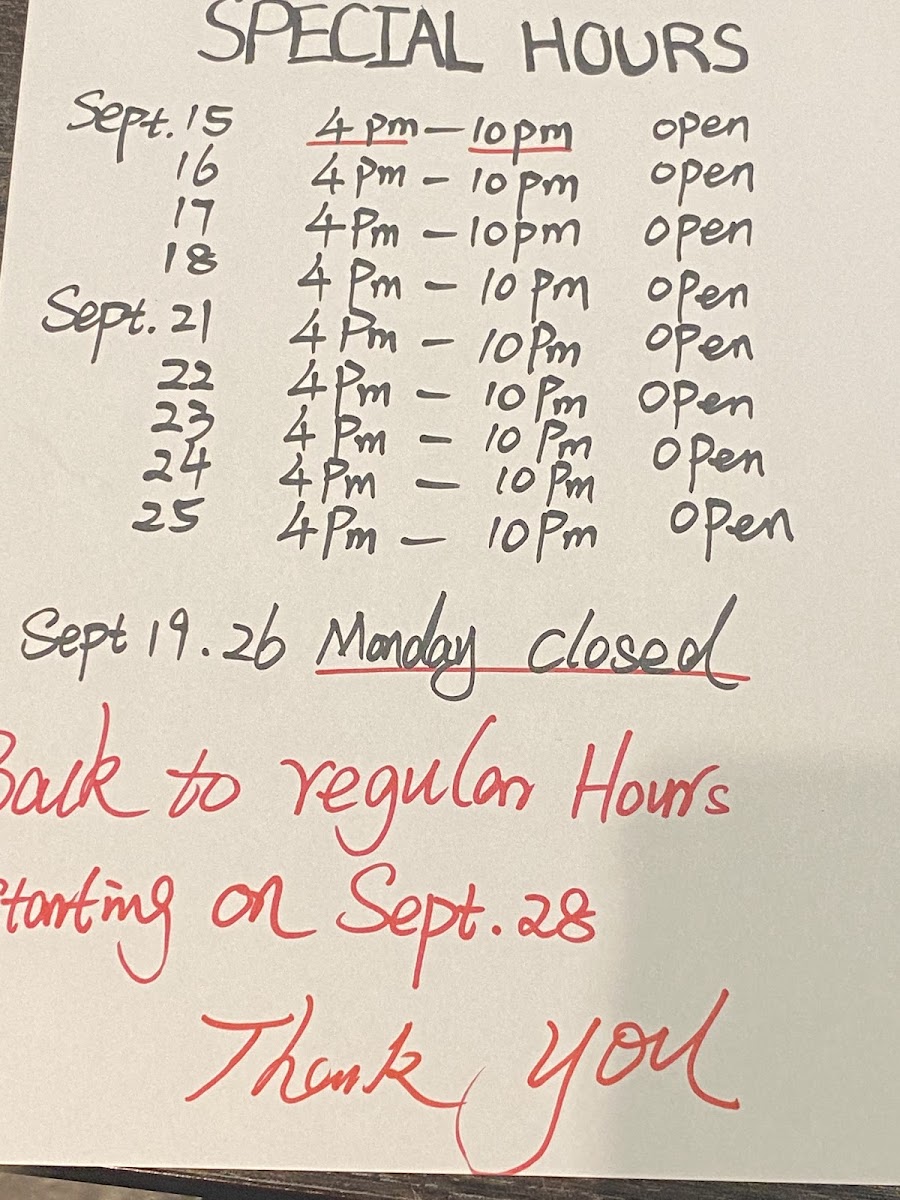 SPECIAL HOURS
Sept. 15 4 pm - 10 pm open
16 4 Pm - 10 pm open
17 4 Pm - 10 pm open
18 4 Pm - 10 Pm open
Sept. 21 4 Pm - 10 Pm open
22 4 Pm - 10 Pm open
23 4 Pm - 10 Pm open
24 4 Pm - 10 Pm
25 4 Pm - 10 Pm open
Sept 19. 26 Monday closed
Back to regular Hours
starting on Sept. 28
Thank you